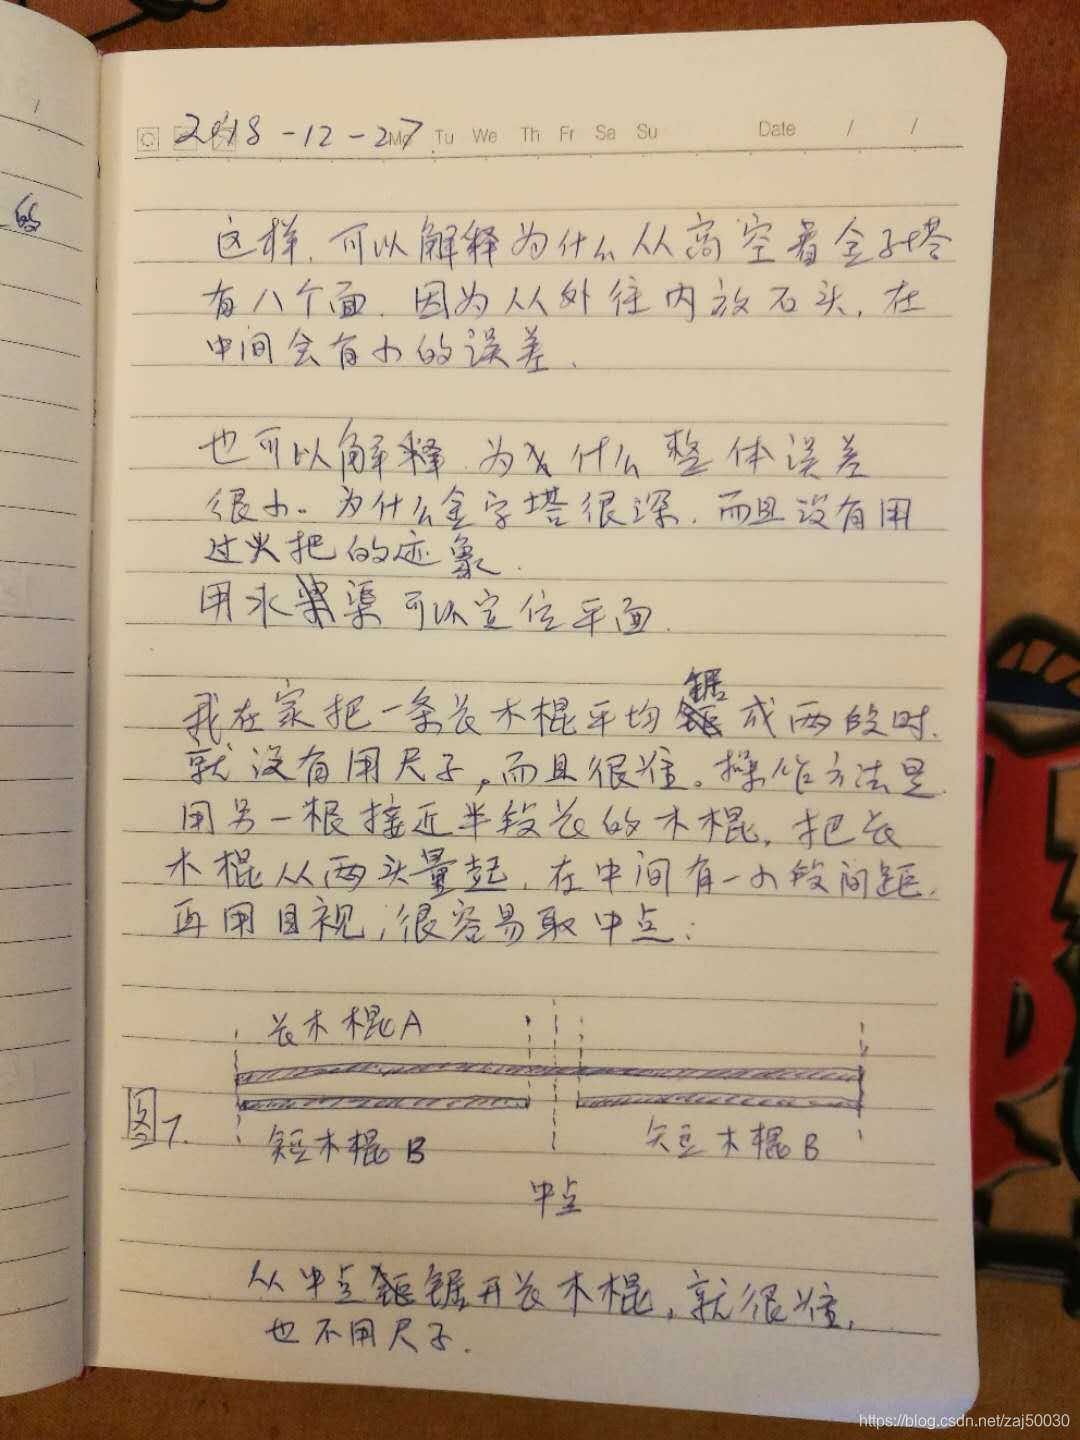 的
2018-12-27
Mo Tu We Th Fr Sa Su Date / /
这样,可以解释为什么从高空看金字塔
有八个面.因为从外往内放石头,在
中间会有小的误差.
也可以解释.为什么整体误差
很小。为什么金字塔很深,而且没有用
过火把的迹象.
用水渠可以定位平面.
我在家把一条长木棍平均锯成两段时,
就没有用尺子,而且很准。操作方法是
用另一根接近半段长的木棍,把长
木棍从两头量起,在中间有一小段间距,
再用目视,很容易取中点:
长木棍A
图1.
短木棍B 短木棍B
中点
从中点锯开长木棍,就很准,
也不用尺子.
https://blog.csdn.net/zaj50030